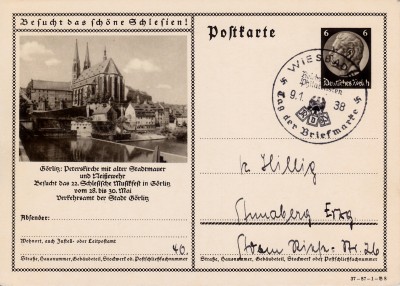 Besucht das schöne Schlesien!
Görlitz: Peterskirche mit alter Stadtmauer
und Neißewehr
Besucht das 22. Schlesische Musikfest in Görlitz
vom 28. bis 30. Mai
Verkehrsamt der Stadt Görlitz
Absender:
Wohnort, auch Zustell- oder Leitpostamt
40.
Straße, Hausnummer, Gebäudeteil, Stockwerk od. Postschließfachnummer
Postkarte
6 6
Deutsches Reich
WIESBADEN
9.1. 38
Tag der Briefmarke
Hillig
Annaberg Erzg.
Str. 26
Straße, Hausnummer, Gebäudeteil, Stockwerk oder Postschließfachnummer